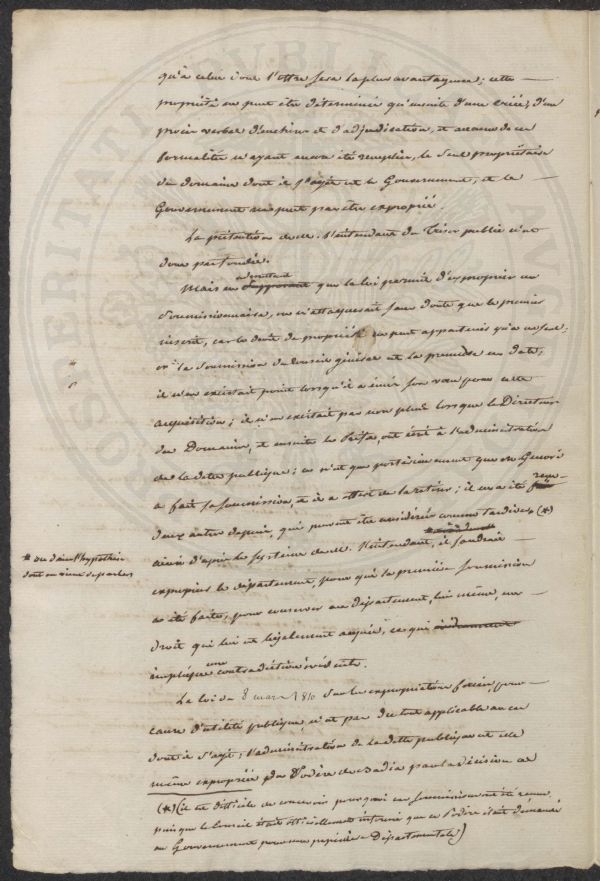 qu'à celui dont l'offre sera la plus avantageuse; cette
propriété ne peut être déterminée qu'ensuite d'une criée, d'un
procès verbal d'enchère et d'adjudication, et aucune de ces
formalités n'ayant encore été remplie, le seul propriétaire
du domaine dont il s'agit est le Gouvernement, et le
Gouvernement ne peut pas être exproprié.
La prétention de M. l'intendant du Trésor public n'est
donc pas fondée.
admettant
Mais en supposant que la loi permit d'exproprier un
soumissionnaire, on n'attaquerait sans doute que le premier
inscrit, car le droit de propriété ne peut appartenir qu'à un seul;
or la soumission du Conseil général est la première en date;
il n'en existait point lorsqu'il a émis son vœu pour cette
acquisition; il n'en existait pas non plus lorsque le Directeur
du Domaine, et ensuite le Préfet ont écrit à l'administration
de la dette publique; ce n'est que postérieurement que
a fait sa soumission, et il a effet de la retirer; il en a été
deux autres depuis, qui peuvent être considérées comme tardives (*)
ainsi d'après le système de M. l'intendant, il faudrait
* ou dans l'hypothèse
dont on vient de parler
exproprier le département, pour que la première soumission
a été faite, pour conserver au département, lui même, un
droit qui lui est légalement acquis, ce qui
implique une contradiction évidente.
La loi du 8 mars 1810 sur les expropriations forcées, pour
cause d'utilité publique, n'est pas du tout applicable au cas
dont il s'agit; l'administration de la dette publique est elle
même expropriée du Podère de Badia par la décision de
(*) (il est difficile de concevoir pourquoi ces soumissions ont été reçues,
puisque le Conseil était officiellement informé que ce Podère était demandé
au Gouvernement pour une pépinière Départementale)